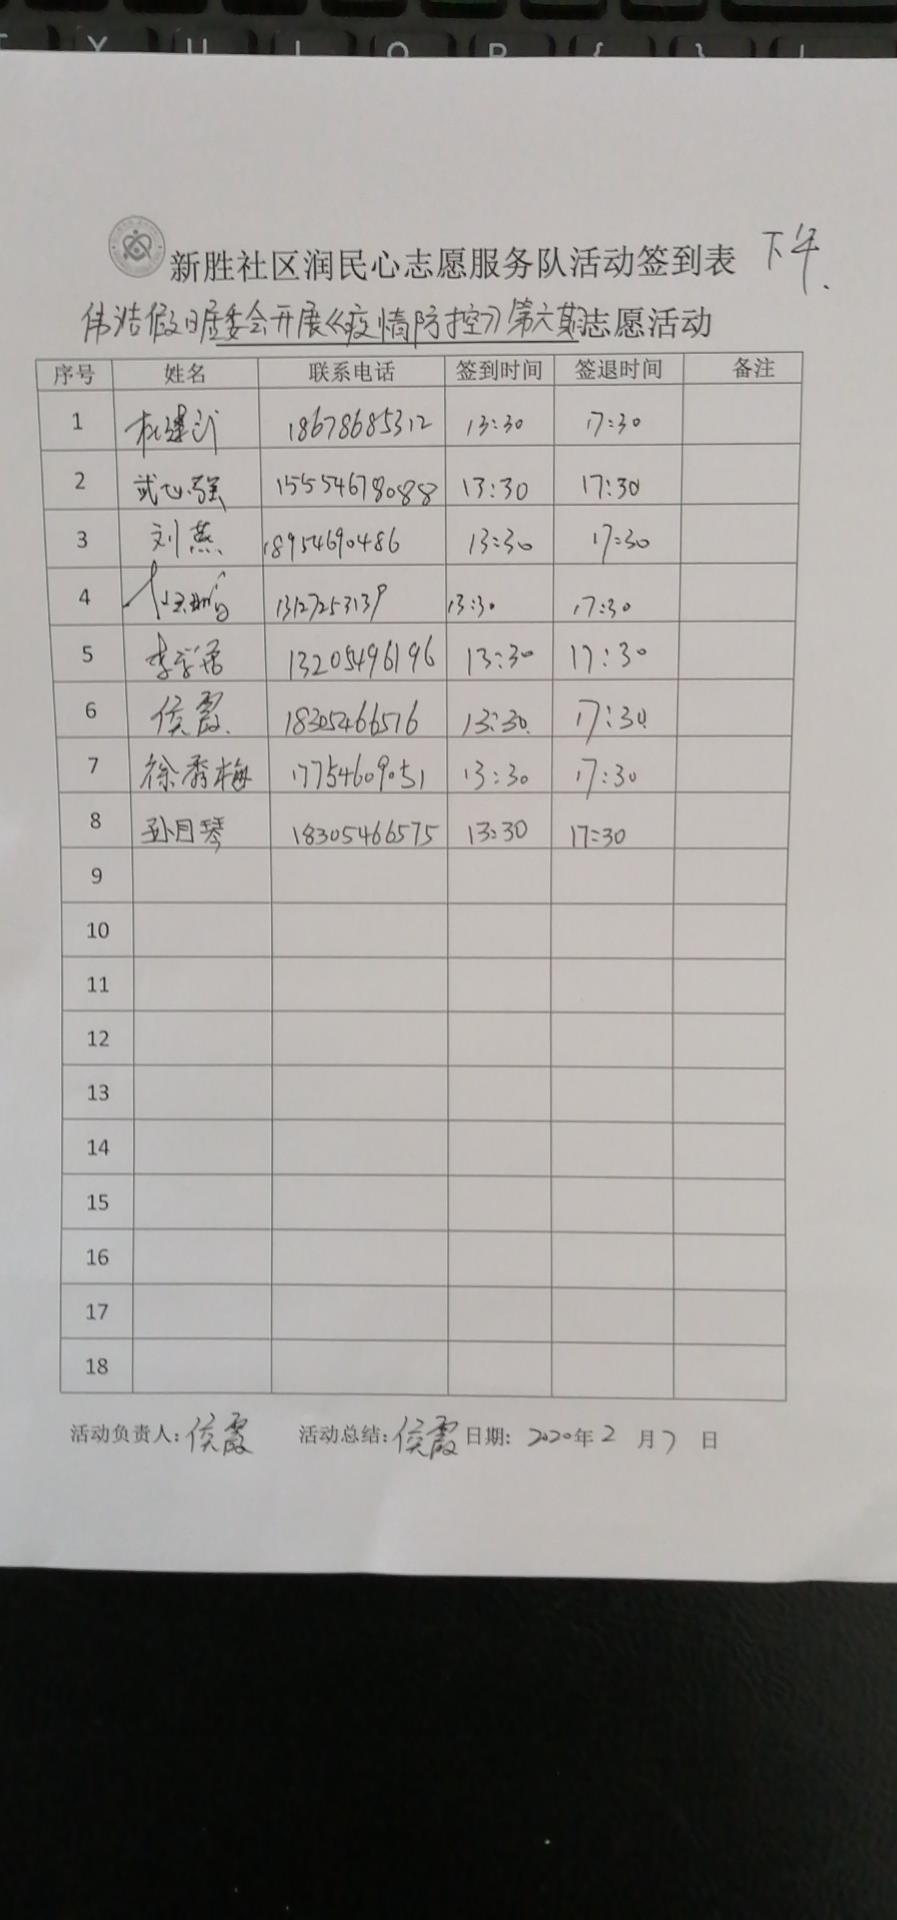 新胜社区润民心志愿服务队活动签到表 下午.
伟浩假日居委会开展《疫情防控》第六期志愿活动
序号 姓名 联系电话 签到时间 签退时间 备注
1 18678685312 13:30 17:30
2 武心强 15554678088 13:30 17:30
3 刘燕 18954690486 13:30 17:30
4 13127253139 13:30 17:30
5 13205496196 13:30 17:30
6 侯霞 18305466516 13:30 17:30
7 徐秀梅 17754609051 13:30 17:30
8 孙月琴 18305466575 13:30 17:30
9
10
11
12
13
14
15
16
17
18
活动负责人:侯霞 活动总结:侯霞 日期: 2020年2月7日